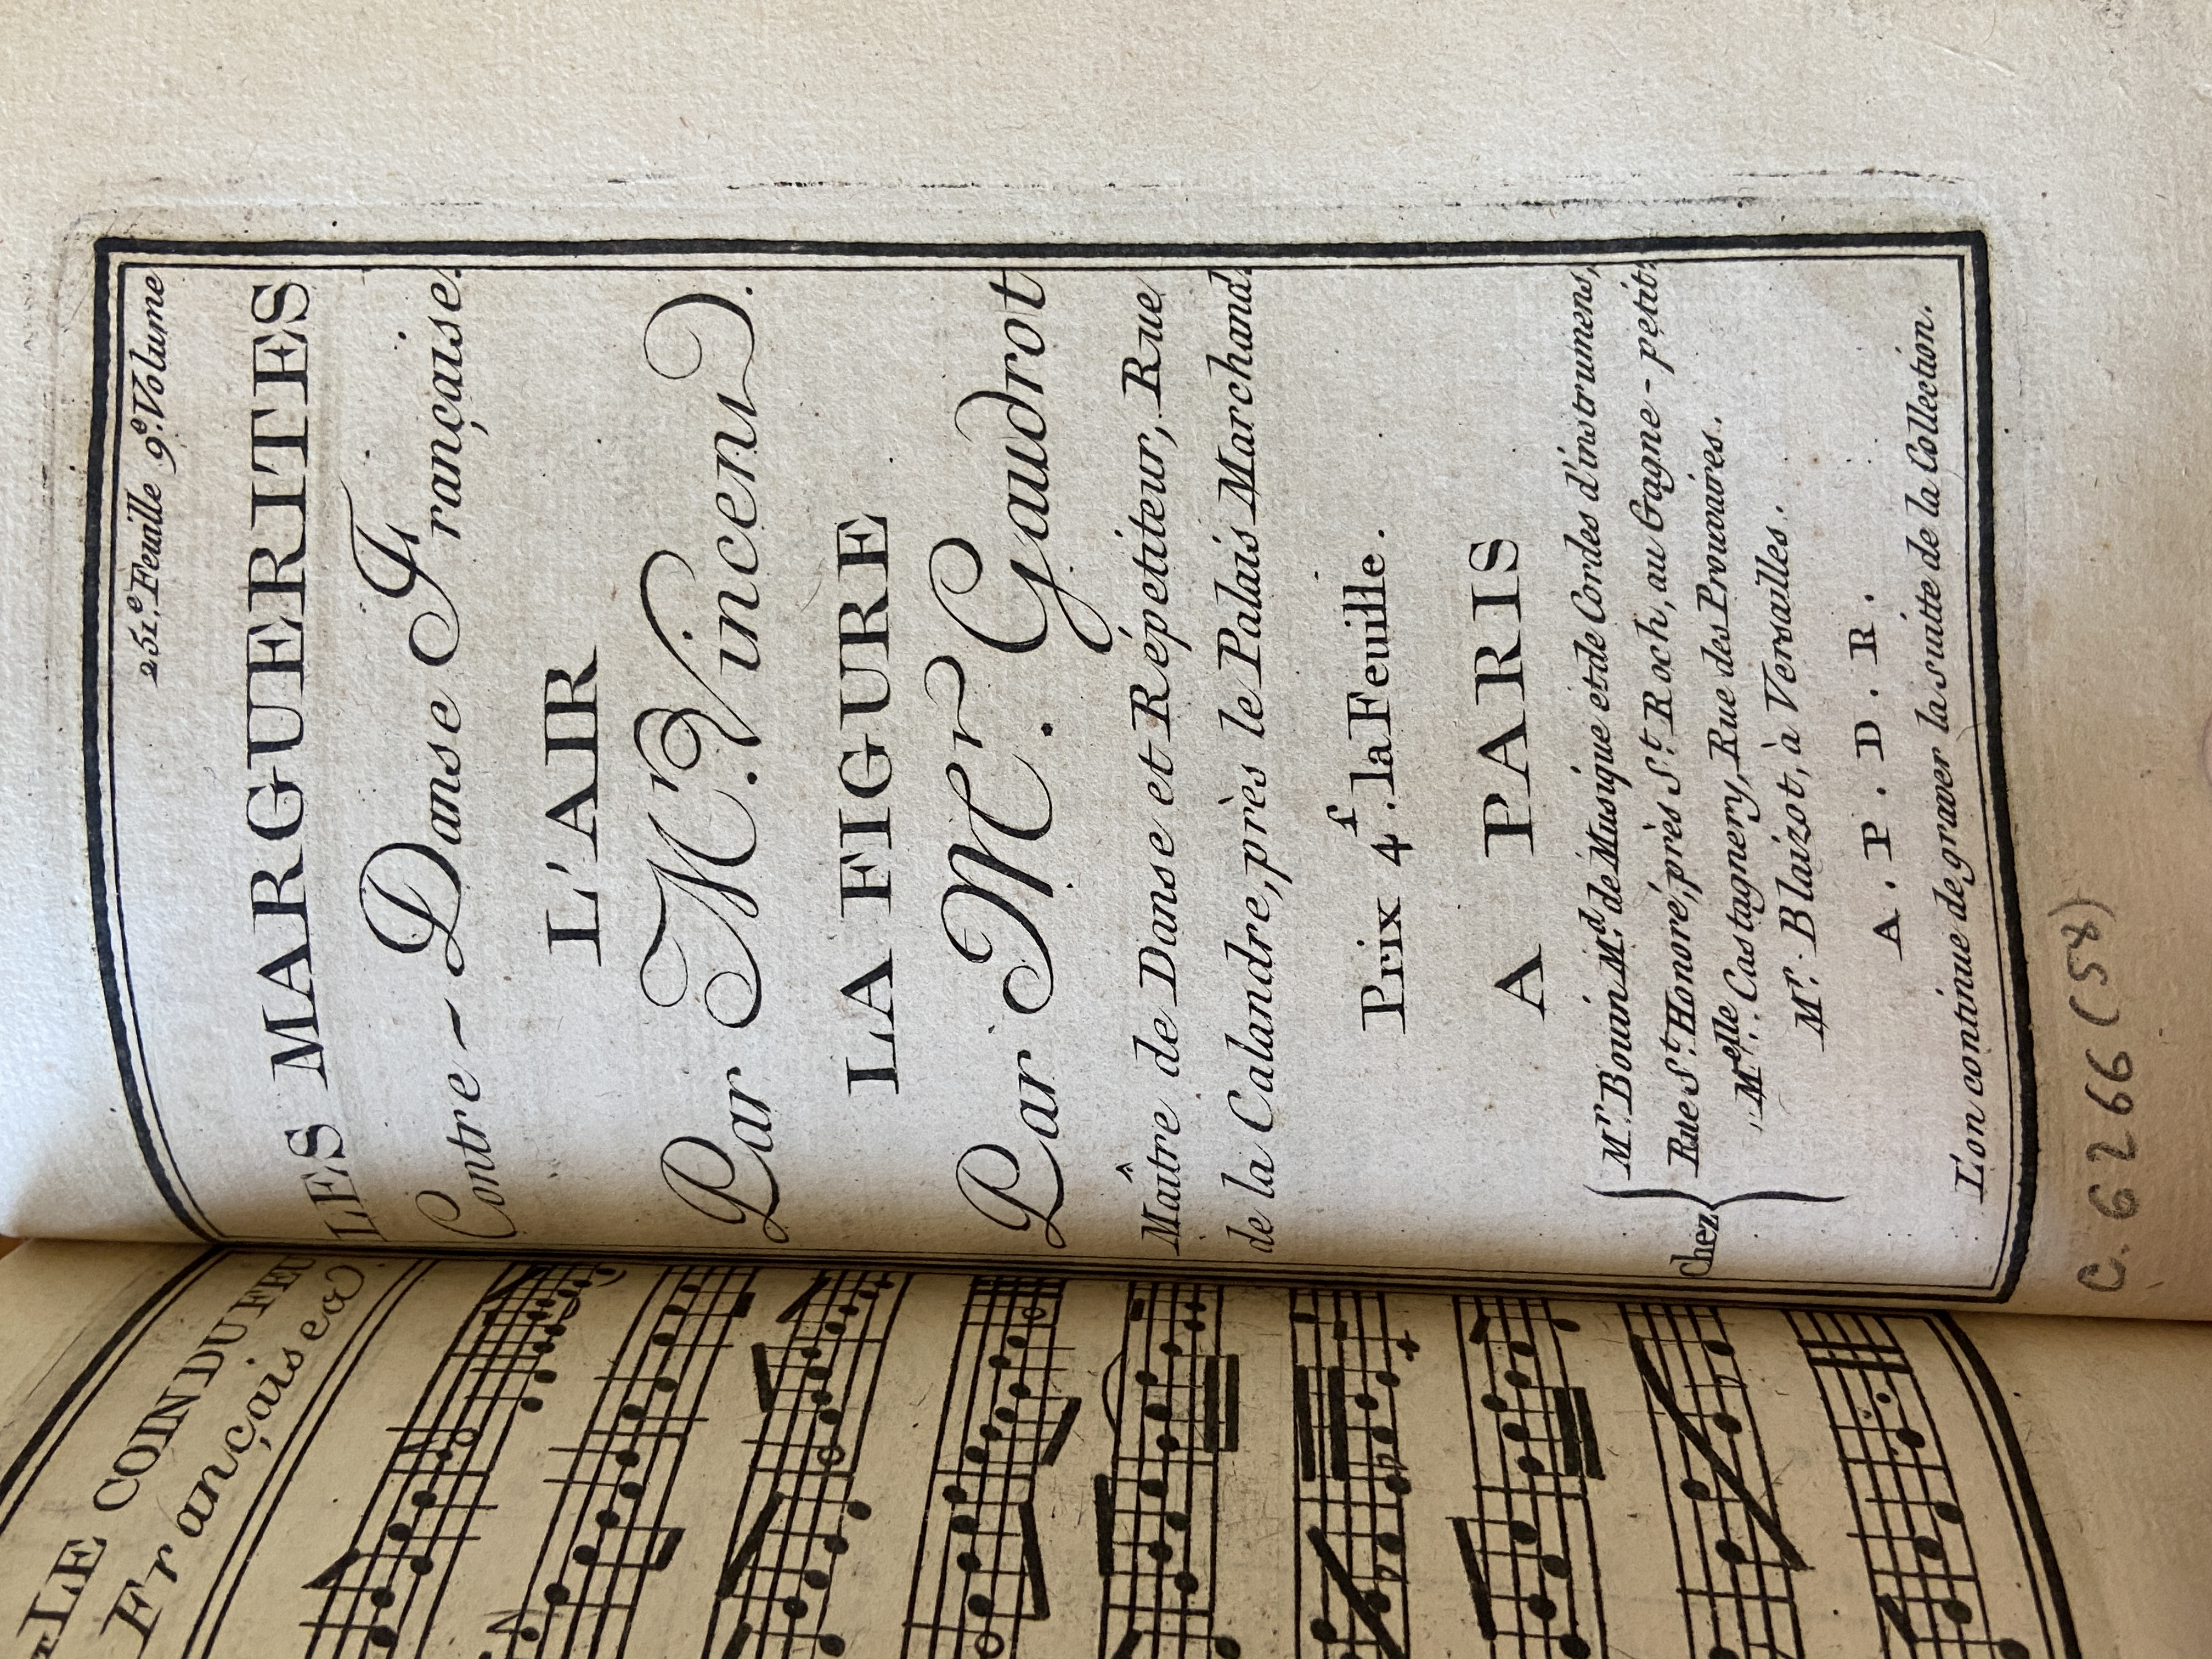 251.e Feuille 9.e Volume
LES MARGUERITES
Contre-Danse Française.
L'AIR
Par M.r Vincent.
LA FIGURE
Par M.r Gaudrot
Maître de Danse et Répetiteur, Rue
de la Calandre, près le Palais Marchand.
Prix 4.f la Feuille.
A PARIS
Chez
M.r Bouin M.d de Musique et de Cordes d'instrumens,
Rue S.t Honoré, près S.t Roch, au Gagne-petit.
M.elle Castagnery, Rue des Prouvaires.
M.r Blaizot, à Versailles.
A. P. D. R.
L'on continue de graver la suitte de la Collection.
C. 6266 (58)
LE COIN DU FEU
Française